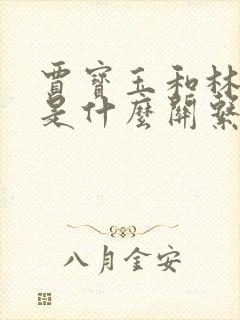 賈寶玉和林
是什麼關繫
八月金安